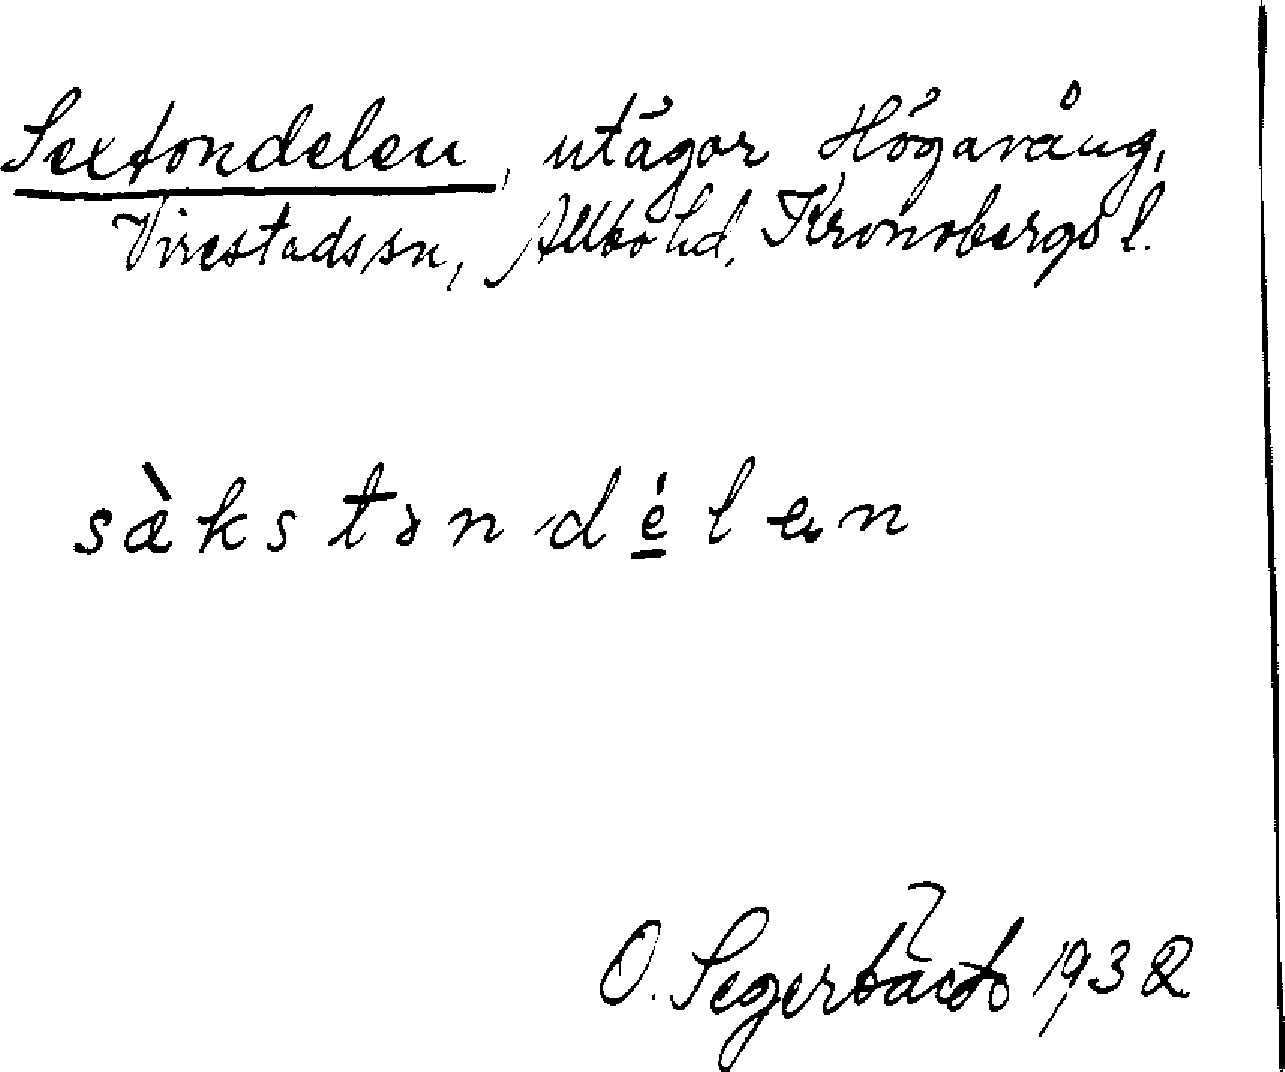 Sextondelen, utägor Högavång,
Virestads sn, Allbo hd, Kronobergs l.
sæ̀kstɔndélen
O. Segerbäck 1932